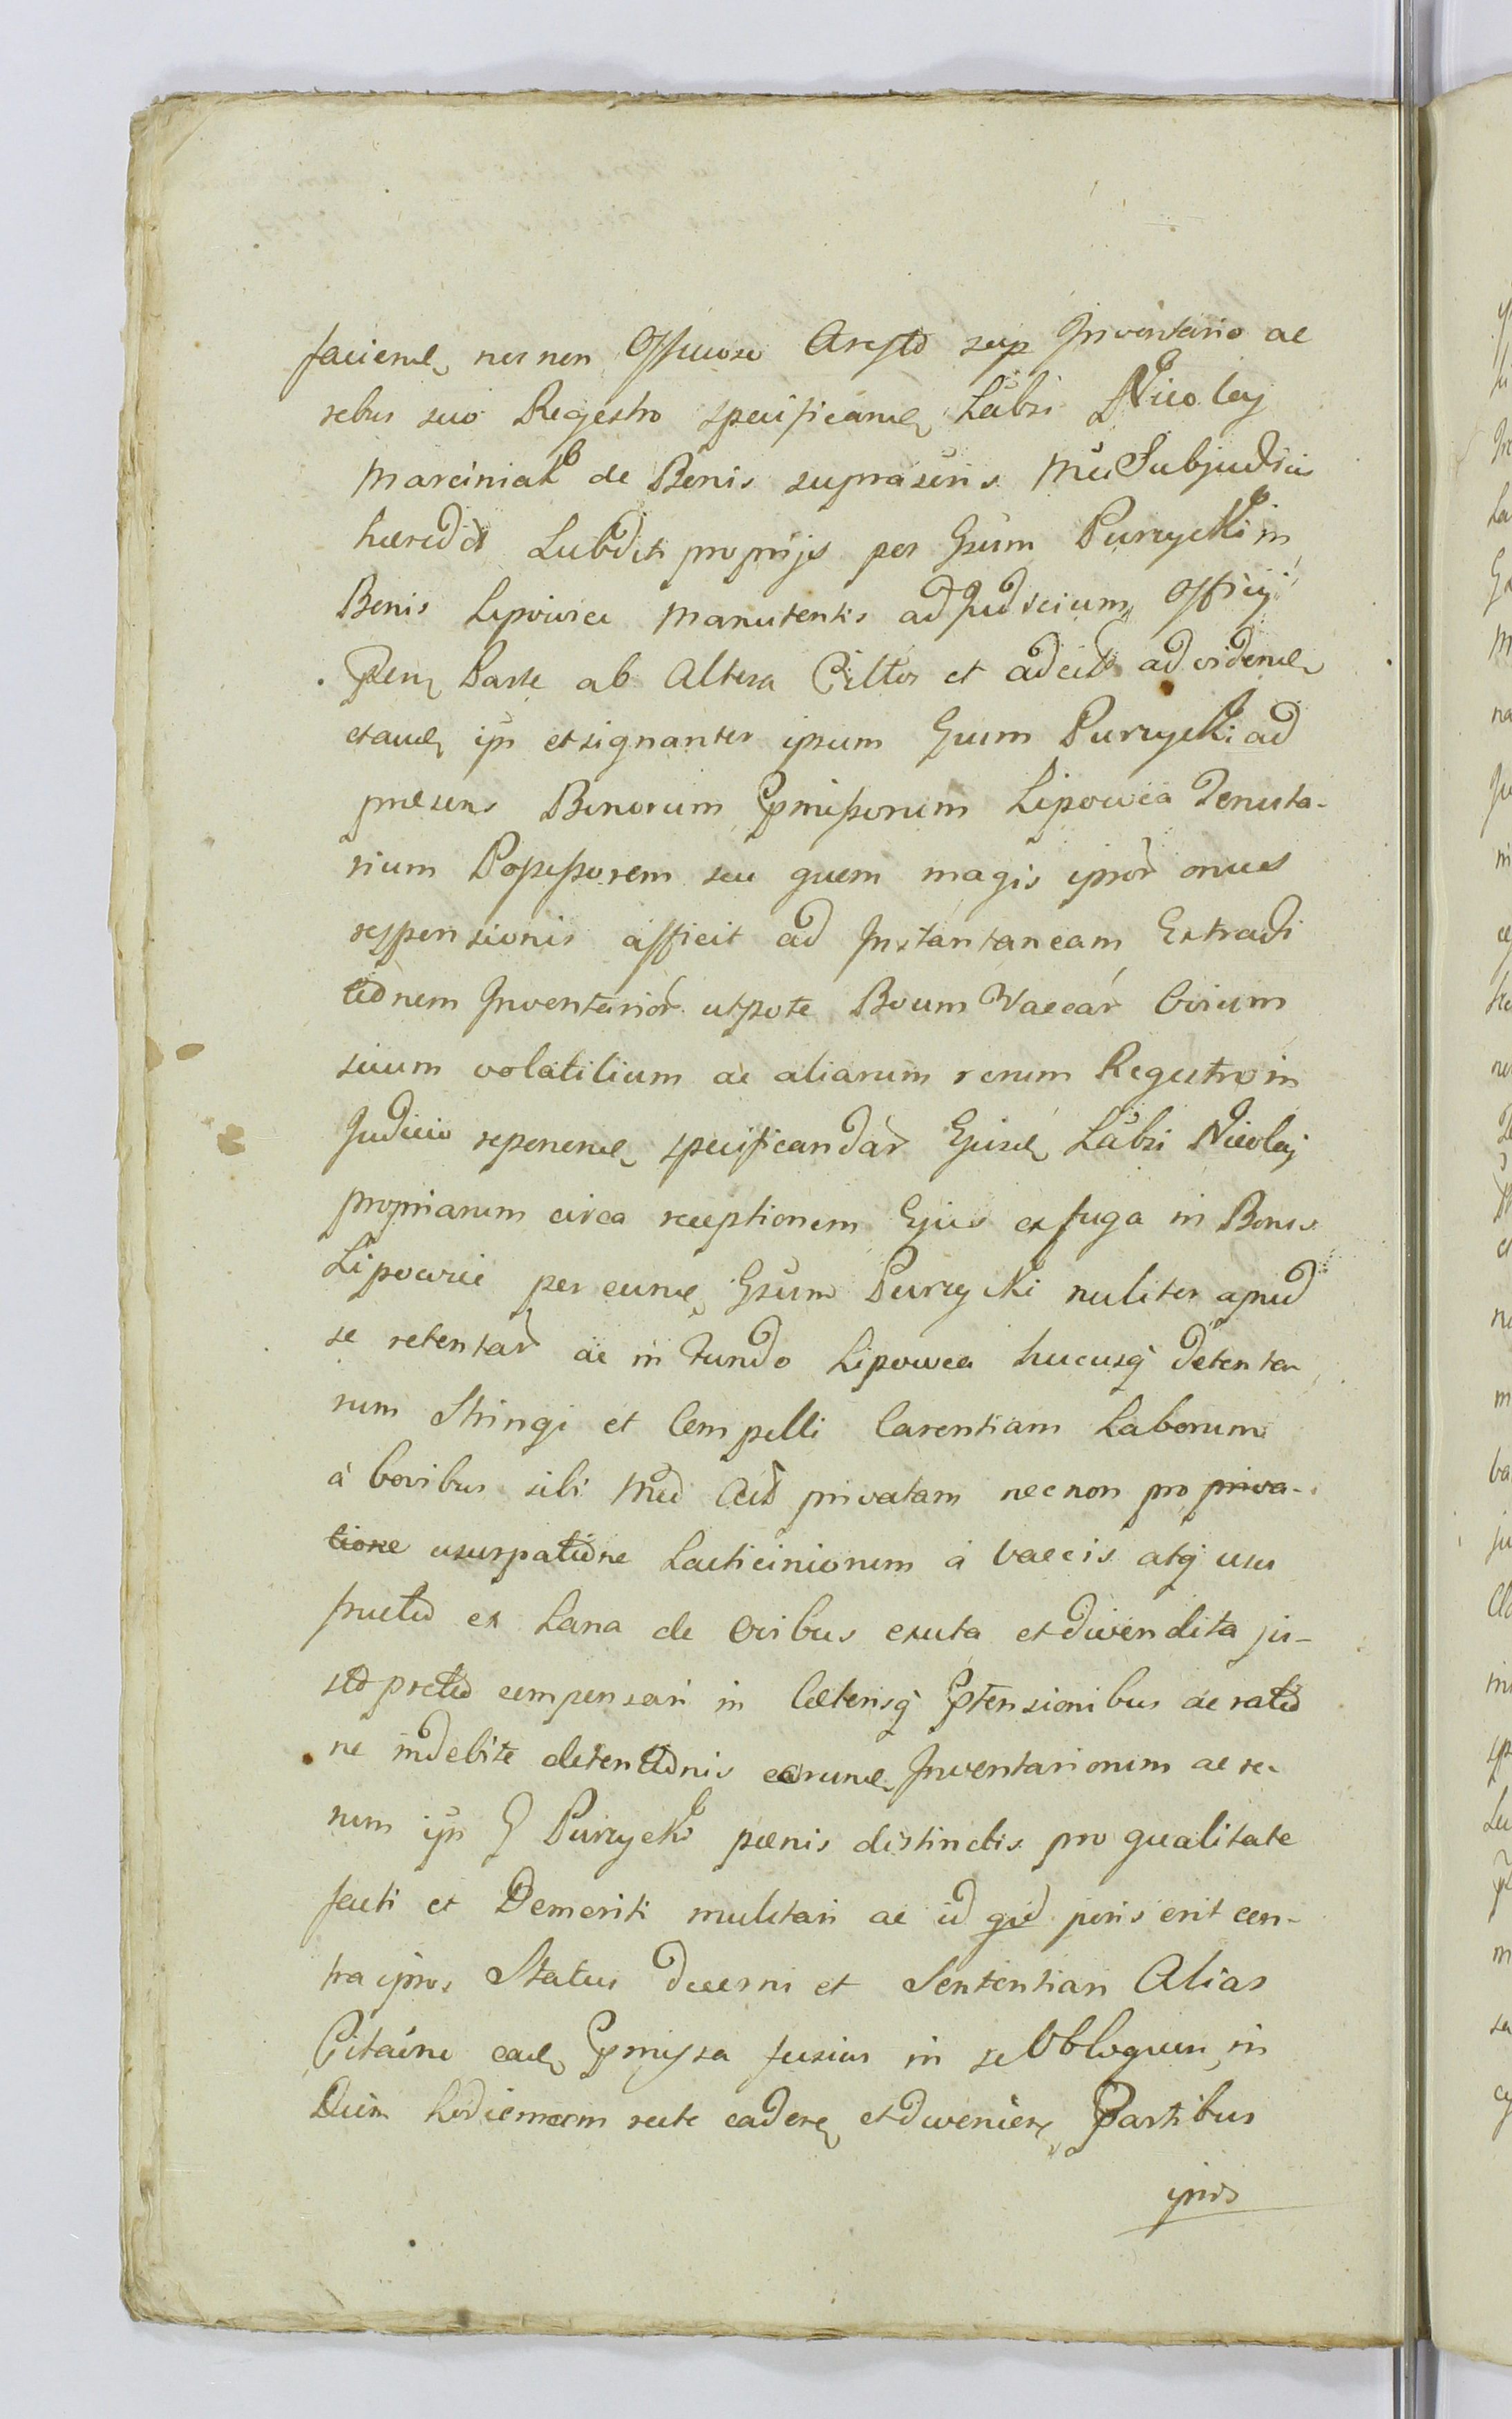 faciend, nec non Officioso Aresto sup Inventario ac
rebus suo Regestro specificand, Labsi Nicolaj
Marciniak de Bonis suprascris Mci Subjudicis
hæredit Subditi proprijs per Gsum Purzycki in
Bonis Lipowiec manutentis ad Judicium Officij
Pen, Parte ab Altera Cittos et adcit ad vidend,
et aud, ip et signanter ipsum Gsum Purzycki ad
præsens Bonorum Pmissorum Lipowca Tenuta-
rium Possessorem seu quem magis ipsor onus
responsionis afficit ad Instantaneam Extradi
tionem Inventarior utpote Boum Vaccar Ovium
suum volatilium ac aliarum rerum Regestro in
Judicio reponend, specificandar Ejusd, Labsi Nicolaj
propriarum circa receptionem Ejus ex fuga in Bonis
Lipowcie per eund, Gsum Purzycki nuliter apud
se retentar ac in Fundo Lipowca hucusq detenta-
rum Stringi et Compelli Carentiam Laborum
à bovibus sibi Mco Acto privatam necnon pro priva-
tione usurpatione Lacticiniorum à vaccis atq usu
fructu ex Lana de Ovibus exuta et divendita ju-
sto pretio compensari in Cæterisq Ptensionibus ac ratio
ne indebite detentionis eorund, Inventariorum ac re-
rum ip G Purzycki pœnis distinctis pro qualitate
facti et Demeriti mulctari ac id qid juris erit con-
tra ipsos Status decerni et Sententiari Alias
Citatione ead, Pmissa fusius in se Obloquen, in
Diem hodiernam recte caden, et dvenien, Partibus
ipsis